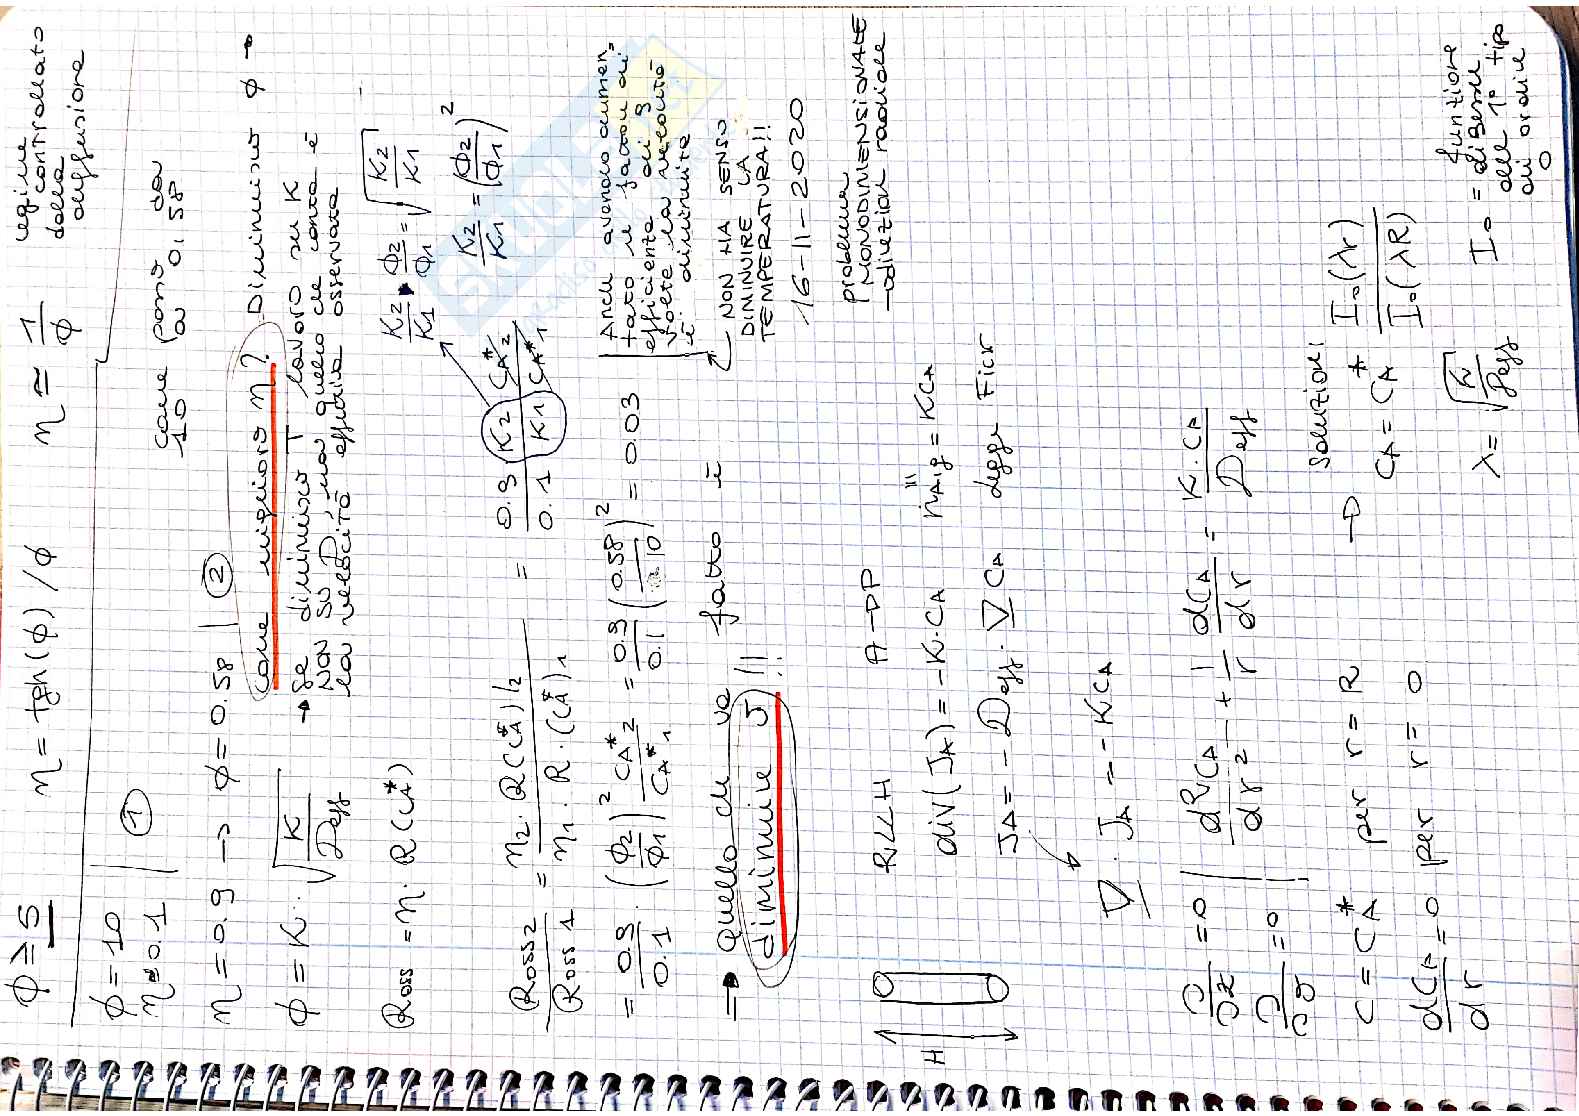 φ ≥ 5 η = tgh(φ)/φ η ≅ 1/φ regime controllato dalla diffusione
φ = 10
η = 0.1 ①
come passo da
10 a 0,58
η = 0.9 → φ = 0.58 ②
come miglioro η? Diminuisco φ →
φ = K · √(K/Deff)
→ se diminuisco T lavoro su K
NON SU D, ma quello che conta è
la velocità effettiva osservata
Ross = η · R(CA*)
K2/K1 · φ2/φ1 = √(K2/K1)
K2/K1 = (φ2/φ1)²
Ross2/Ross1 = η2 · R(CA*)|2 / η1 · R · (CA*)1 = 0.9/0.1 K2/K1 CA*2/CA*1
= 0.9/0.1 · (φ2/φ1)² CA*2/CA*1 = 0.9/0.1 (0.58/10)² = 0.03
Anche avendo aumen=
tato il fattore di
efficienza di 9
volte la velocità
è diminuita
→ quello che va fatto è
diminuire δ!!
NON HA SENSO
DIMINUIRE LA
TEMPERATURA!!
16-11-2020
H
R<<H A → P
problema
MONODIMENSIONALE
→ direzione radiale
div(JA) = -K·CA n̈A,g''' = KCA
JA = -Deff · ∇CA legge Fick
∇ · JA = -KCA
∂/∂z = 0
∂/∂ϑ = 0
d²CA/dr² + 1/r dCA/dr = K·CA/Deff
c = CA* per r = R
dCA/dr = 0 per r = 0
→ soluzione:
CA = CA* I₀(λr)/I₀(λR)
λ = √(K/Deff) I₀ = funzione
di Bessel
del 1° tipo
di ordine
0